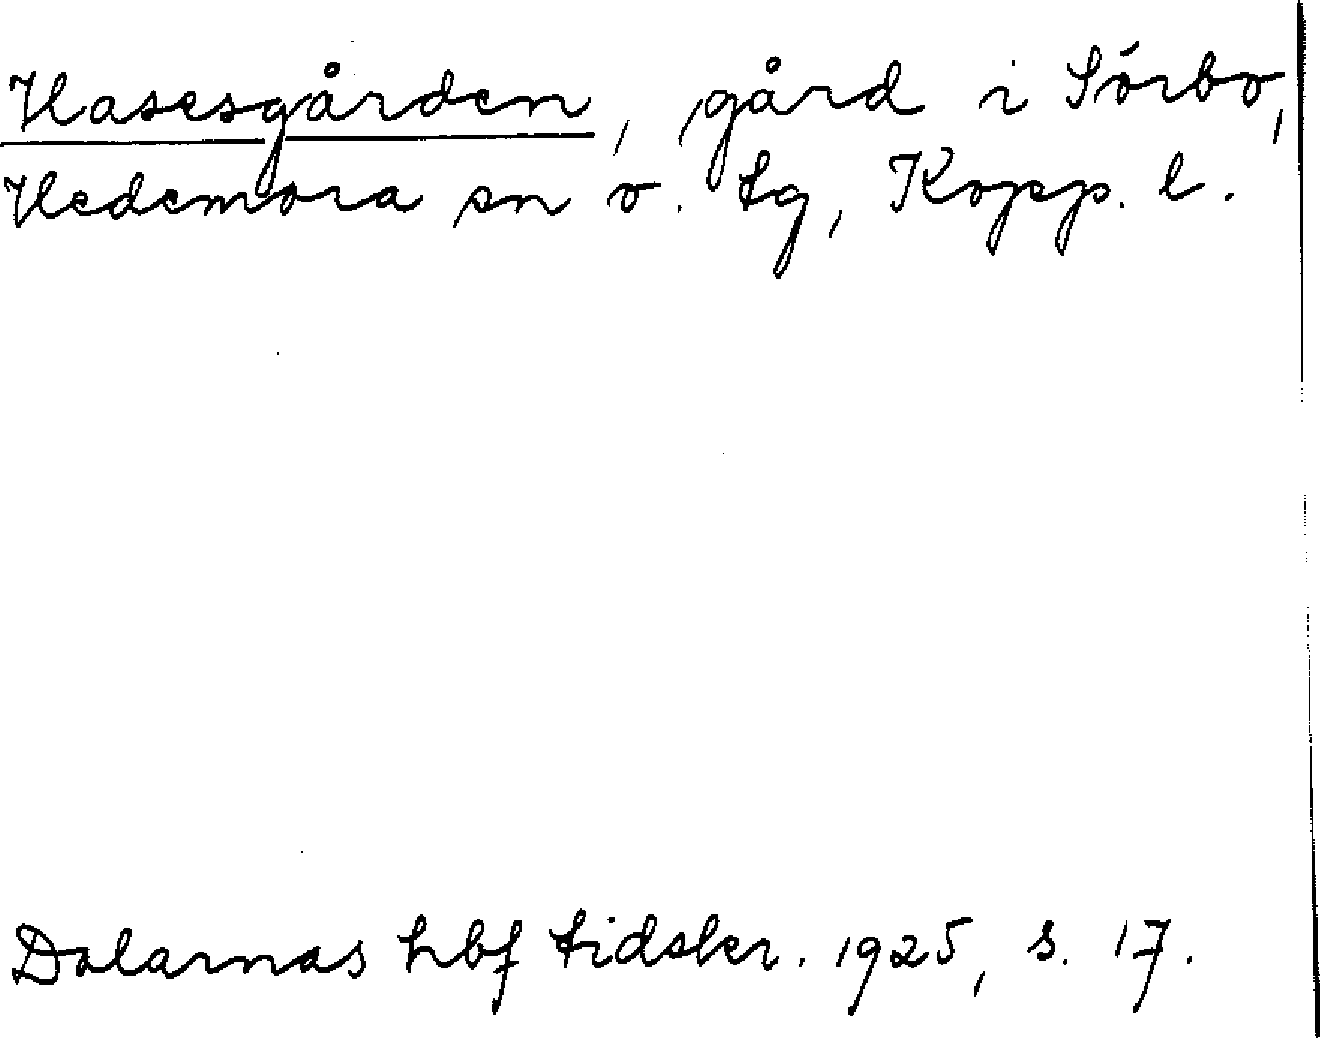 Hasesgården, gård i Sörbo,
Hedemora sn o. tg, Kopp. l.
Dalarnas hbf tidskr. 1925, s. 17.